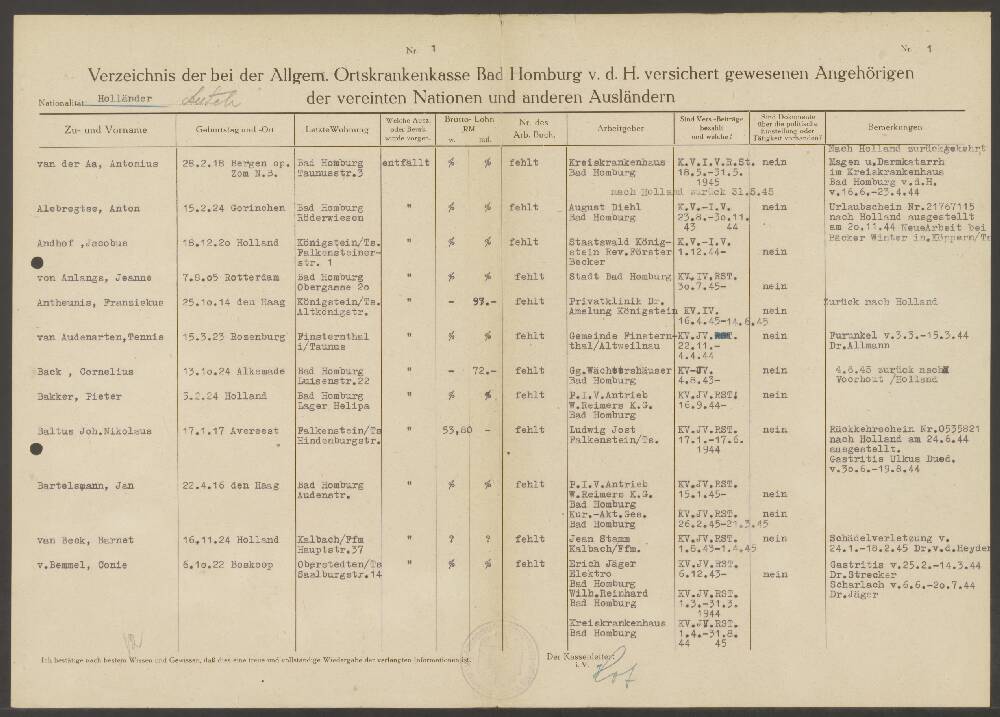 Nr. 1
Nr. 1
Verzeichnis der bei der Allgem. Ortskrankenkasse Bad Homburg v. d. H. versichert gewesenen Angehörigen
der vereinten Nationen und anderen Ausländern
Nationalität Holländer
Zu- und Vorname
Geburtstag und -Ort
Letzte Wohnung
Welche Ausz. oder Berufe wurde vorgen.
Brutto- Lohn RM w. mtl.
Nr. des Arb. Buch.
Arbeitgeber
Sind Vers.-Beiträge bezahlt und welche?
Sind Dokumente über die politische Einstellung oder Tätigkeit vorhanden?
Bemerkungen
Nach Holland zurückgekehrt
van der Aa, Antonius 28.2.18 Bergen op. Bad Homburg entfällt % % fehlt Kreiskrankenhaus K.V.I.V.R.St. nein Magen u.Darmkatarrh
Zom N.B. Taunusstr.3 Bad Homburg 18.5.-31.5. im Kreiskrankenhaus
1945 Bad Homburg v.d.H.
nach Holland zurück 31.5.45 v.16.6.-23.4.44
Alebregtse, Anton 15.2.24 Gorinchen Bad Homburg " % % fehlt August Diehl K.V.-I.V. nein Urlaubschein Nr.21767115
Röderwiesen Bad Homburg 23.8.-30.11. nach Holland ausgestellt
43 44 am 20.11.44 NeueArbeit bei
Andhof ,Jacobus 18.12.20 Holland Königstein/Ts. " % % fehlt Staatswald König- K.V.-I.V. Bäcker Winter in.Köppern/Ts
Falkensteiner- stein Rev.Förster 1.12.44- nein
str. 1 Becker
von Anlangs, Jeanne 7.8.05 Rotterdam Bad Homburg " % % fehlt Stadt Bad Homburg KV.IV.RST.
Obergasse 20 30.7.45- nein
Antheunis, Franziskus 25.10.14 den Haag Königstein/Ts. " - 93.- fehlt Privatklinik Dr. Zurück nach Holland
Altkönigstr. Amelung Königstein KV.IV. nein
16.4.45-14.6.45
van Audenarten,Tennis 15.3.23 Rozenburg Finsternthal " % % fehlt Gemeinde Finstern-KV.JV.RST. nein Furunkel v.3.3.-15.3.44
i/Taunus thal/Altweilnau 22.11.- Dr.Allmann
4.4.44
Back , Cornelius 13.10.24 Alkemade Bad Homburg " - 72.- fehlt Gg.Wächtershäuser KV-JV. nein 4.6.45 zurück nach
Luisenstr.22 Bad Homburg 4.8.43- Voorhout /Holland
Bakker, Pieter 5.2.24 Holland Bad Homburg " % % fehlt P.I.V.Antrieb KV.JV.RST. nein
Lager Helipa W.Reimers K.G. 16.9.44-
Bad Homburg
Baltus Joh.Nikolaus 17.1.17 Averest Falkenstein/Ts " 53,80 - fehlt Ludwig Jost KV.JV.RST. nein Rückkehrschein Nr.0535821
Hindenburgstr. Falkenstein/Ts. 17.1.-17.6. nach Holland am 24.6.44
1944 ausgestellt.
Gastritis Ulkus Dued.
v.30.6.-19.8.44
Bartelsmann, Jan 22.4.16 den Haag Bad Homburg " % % fehlt P.I.V.Antrieb KV.JV.RST.
Audenstr. W.Reimers K.G. 15.1.45- nein
Bad Homburg
Kur.-Akt.Ges. KV.JV.RST. nein
Bad Homburg 26.2.45-21.3.45
van Beck, Barnet 16.11.24 Holland Kalbach/Ffm " ? ? fehlt Jean Stamm KV.JV.RST. nein Schädelverletzung v.
Hauptstr.37 Kalbach/Ffm. 1.8.43-1.4.45 24.1.-18.2.45 Dr.v.d.Heyden
v.Bemmel, Conie 6.10.22 Boskoop Oberstedten/Ts " % % fehlt Erich Jäger KV.JV.RST. Gastritis v.25.2.-14.3.44
Saalburgstr.14 Elektro 6.12.43- nein Dr.Strecker
Bad Homburg Scharlach v.6.6.-20.7.44
Wilh.Reinhard KV.JV.RST. Dr.Jäger
Bad Homburg 1.3.-31.3.
1944
Kreiskrankenhaus KV.JV.RST.
Bad Homburg 1.4.-31.8.
44 45
Ich bestätige nach bestem Wissen und Gewissen, daß dies eine treue und vollständige Wiedergabe der verlangten Informationen ist.
Der Kassenleiter:
i. V.